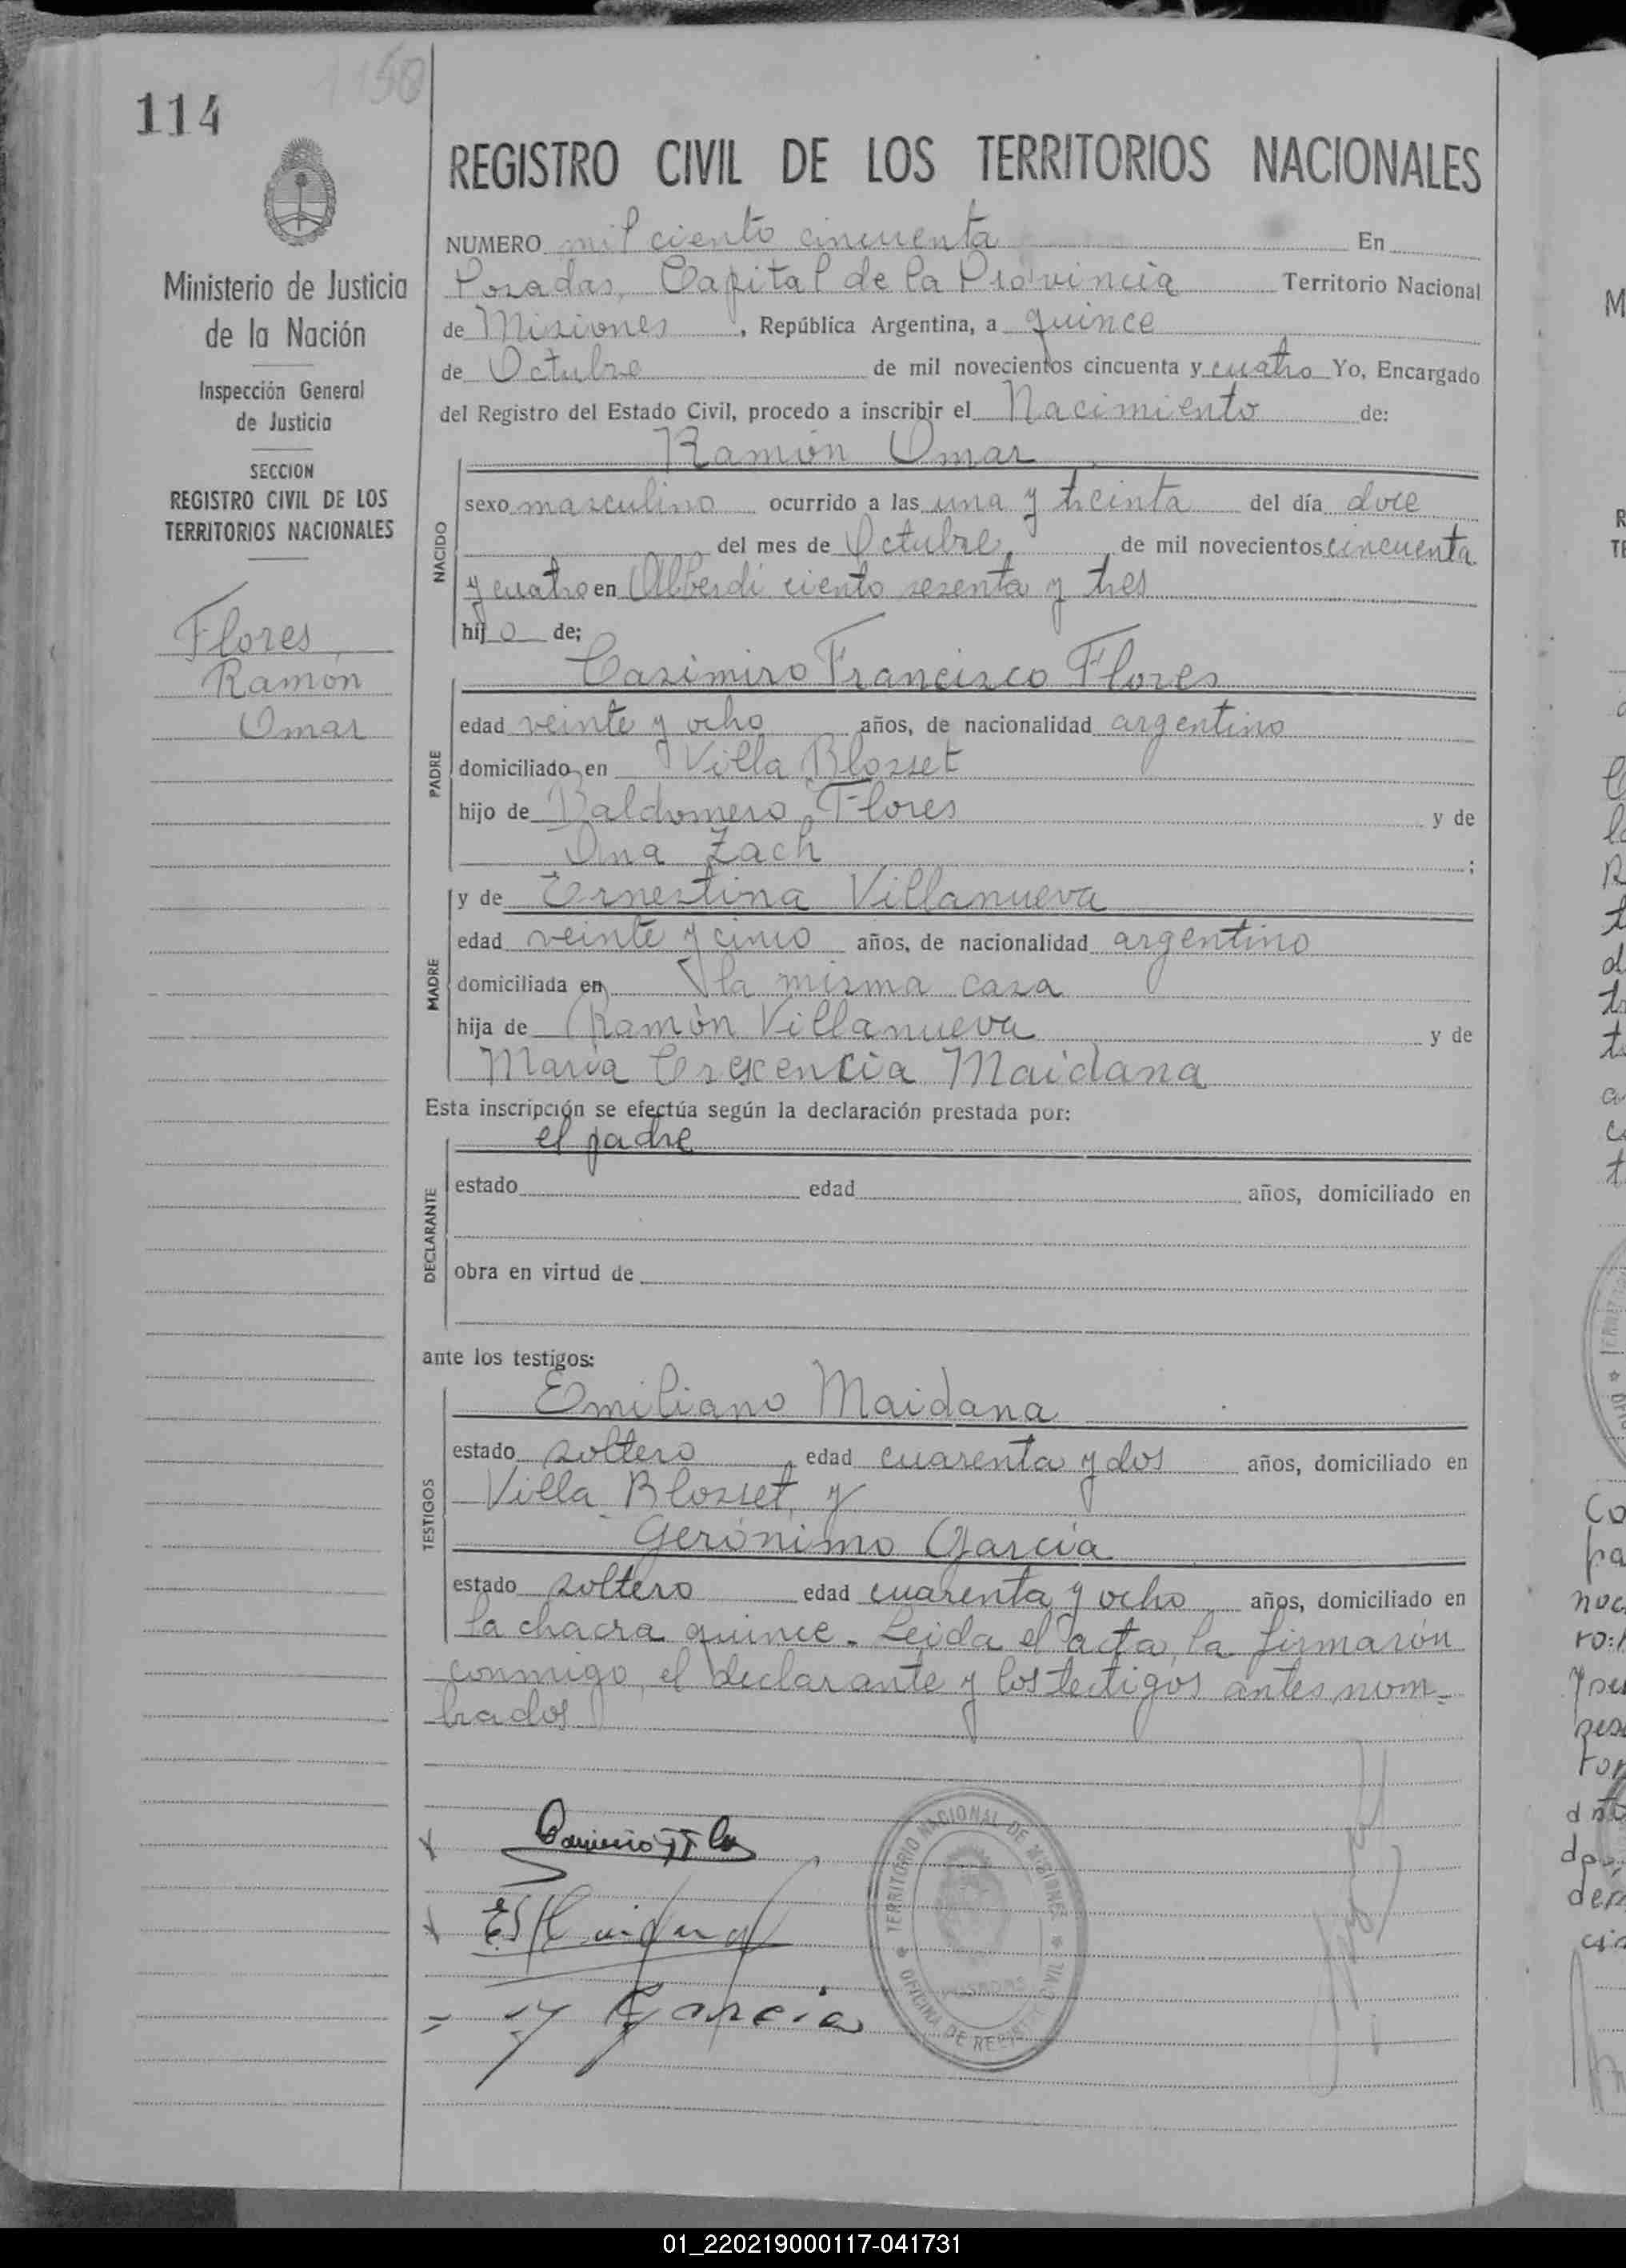 114
1150
REGISTRO CIVIL DE LOS TERRITORIOS NACIONALES
Ministerio de Justicia
de la Nación
Inspección General
de Justicia
SECCION
REGISTRO CIVIL DE LOS
TERRITORIOS NACIONALES
Flores,
Ramón
Omar
NUMERO mil ciento cincuenta En
Posadas, Capital de la Provincia Territorio Nacional
de Misiones, República Argentina, a quince
de Octubre de mil novecientos cincuenta y cuatro Yo, Encargado
del Registro del Estado Civil, procedo a inscribir el Nacimiento de:
Ramón Omar
NACIDO
sexo masculino ocurrido a las una y treinta del día doce
del mes de Octubre, de mil novecientos cincuenta
y cuatro en Alberdi ciento sesenta y tres
hijo de:
Casimiro Francisco Flores
PADRE
edad veinte y ocho años, de nacionalidad argentino
domiciliado en Villa Blosset
hijo de Baldomero Flores y de
Ana Zach ;
y de Ernestina Villanueva
MADRE
edad veinte y cinco años, de nacionalidad argentino
domiciliada en la misma casa
hija de Ramón Villanueva y de
María Crescencia Maidana
Esta inscripción se efectúa según la declaración prestada por:
el padre
DECLARANTE
estado edad años, domiciliado en
obra en virtud de
ante los testigos:
Emiliano Maidana
TESTIGOS
estado soltero edad cuarenta y dos años, domiciliado en
Villa Blosset, y
Gerónimo García
estado soltero edad cuarenta y ocho años, domiciliado en
la chacra quince. Leida el acta, la firmarón
conmigo, el declarante y los testigos antes nom-
brados
Casimiro F Flores
E S Maidana
G García
TERRITORIO NACIONAL DE MISIONES
OFICINA DE REGISTRO CIVIL
01_220219000117-041731